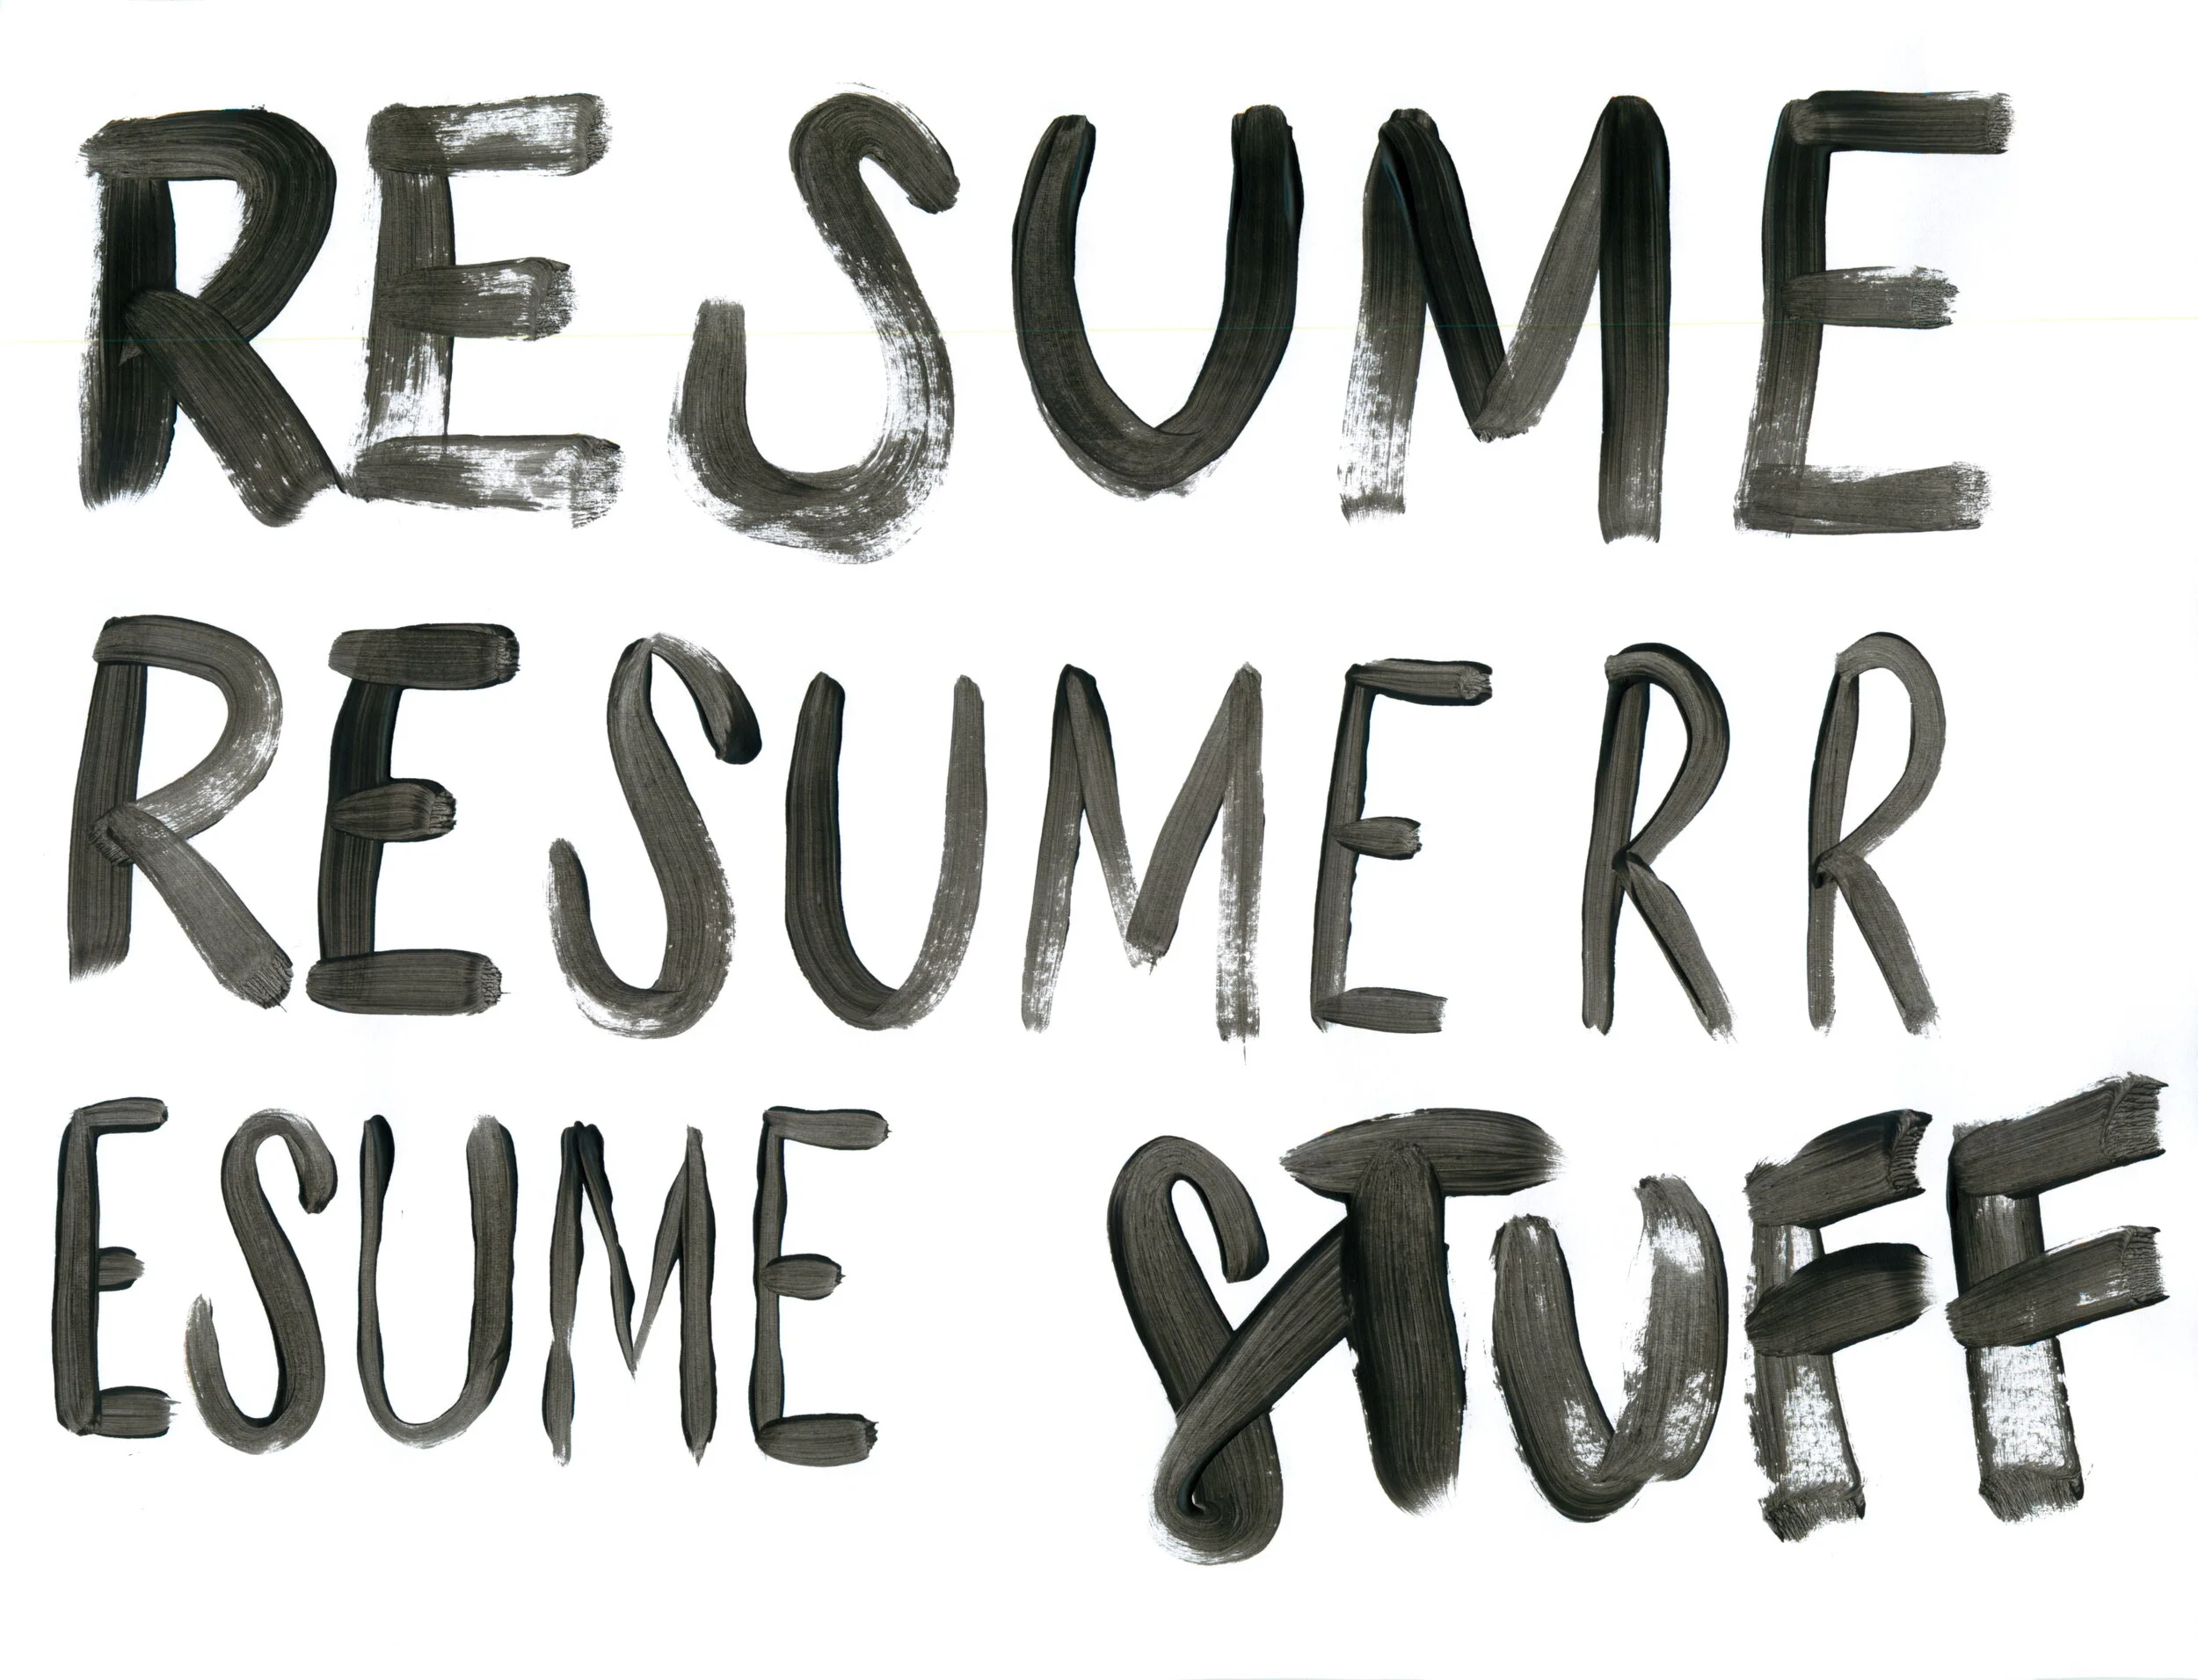 RESUME
RESUME R R
ESUME STUFF